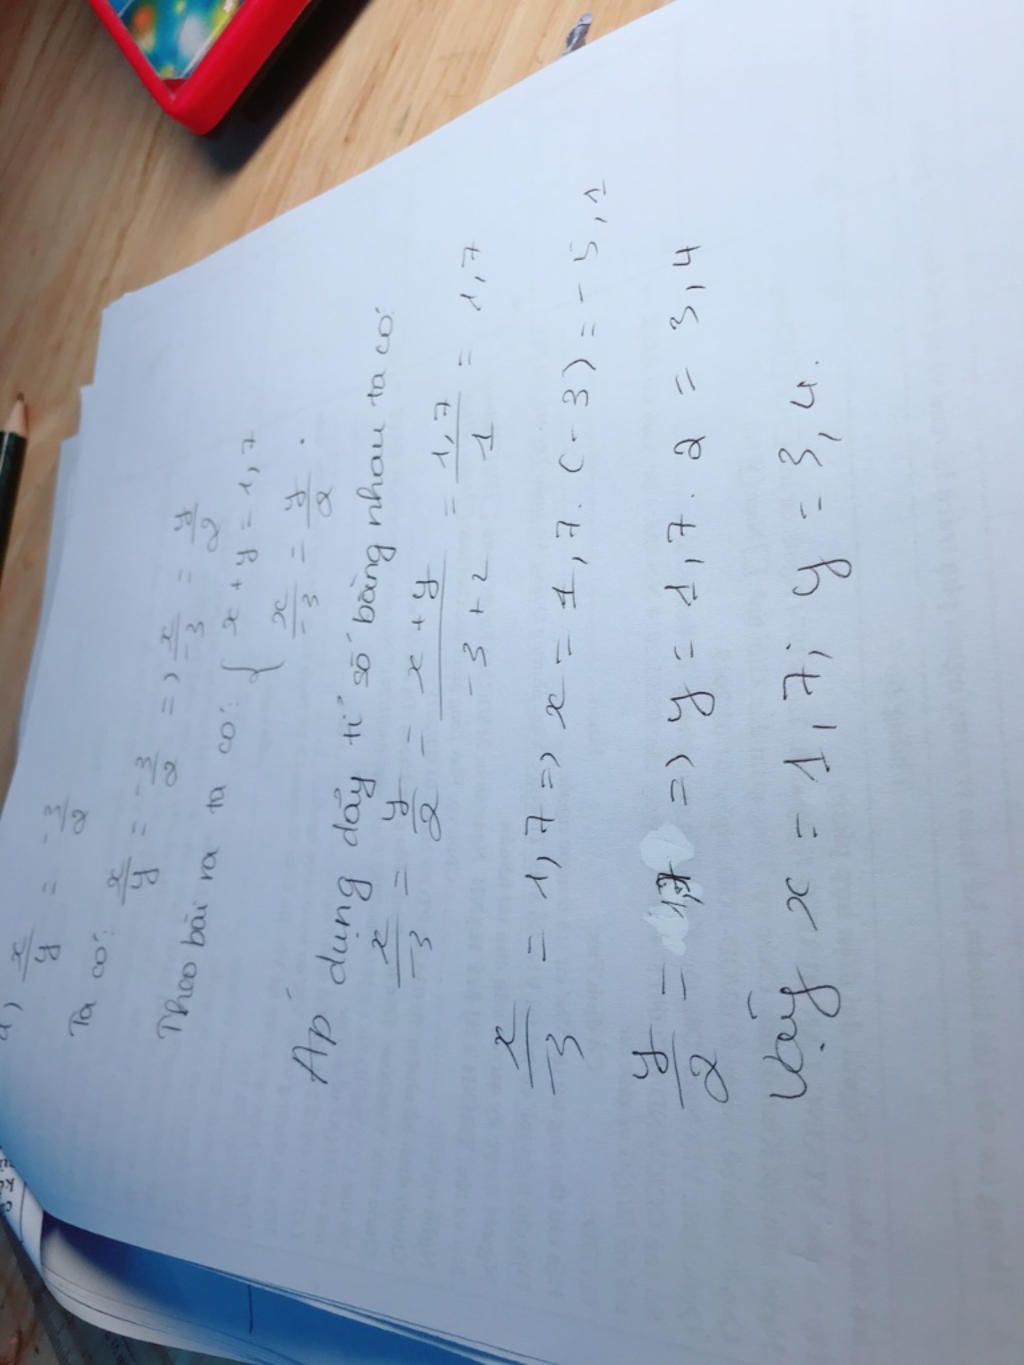 a) x/y = -3/2
Ta có: x/y = -3/2 => x/-3 = y/2
Theo bài ra ta có: { x + y = 1,7
x/-3 = y/2 .
Áp dụng dãy tỉ số bằng nhau ta có:
x/-3 = y/2 = x + y/-3 + 2 = 1,7/1 = 1,7
x/-3 = 1,7 => x = 1,7 . (-3) = -5,1
y/2 = 1,7 => y = 1,7 . 2 = 3,4
Vậy x = 1,7; y = 3,4.